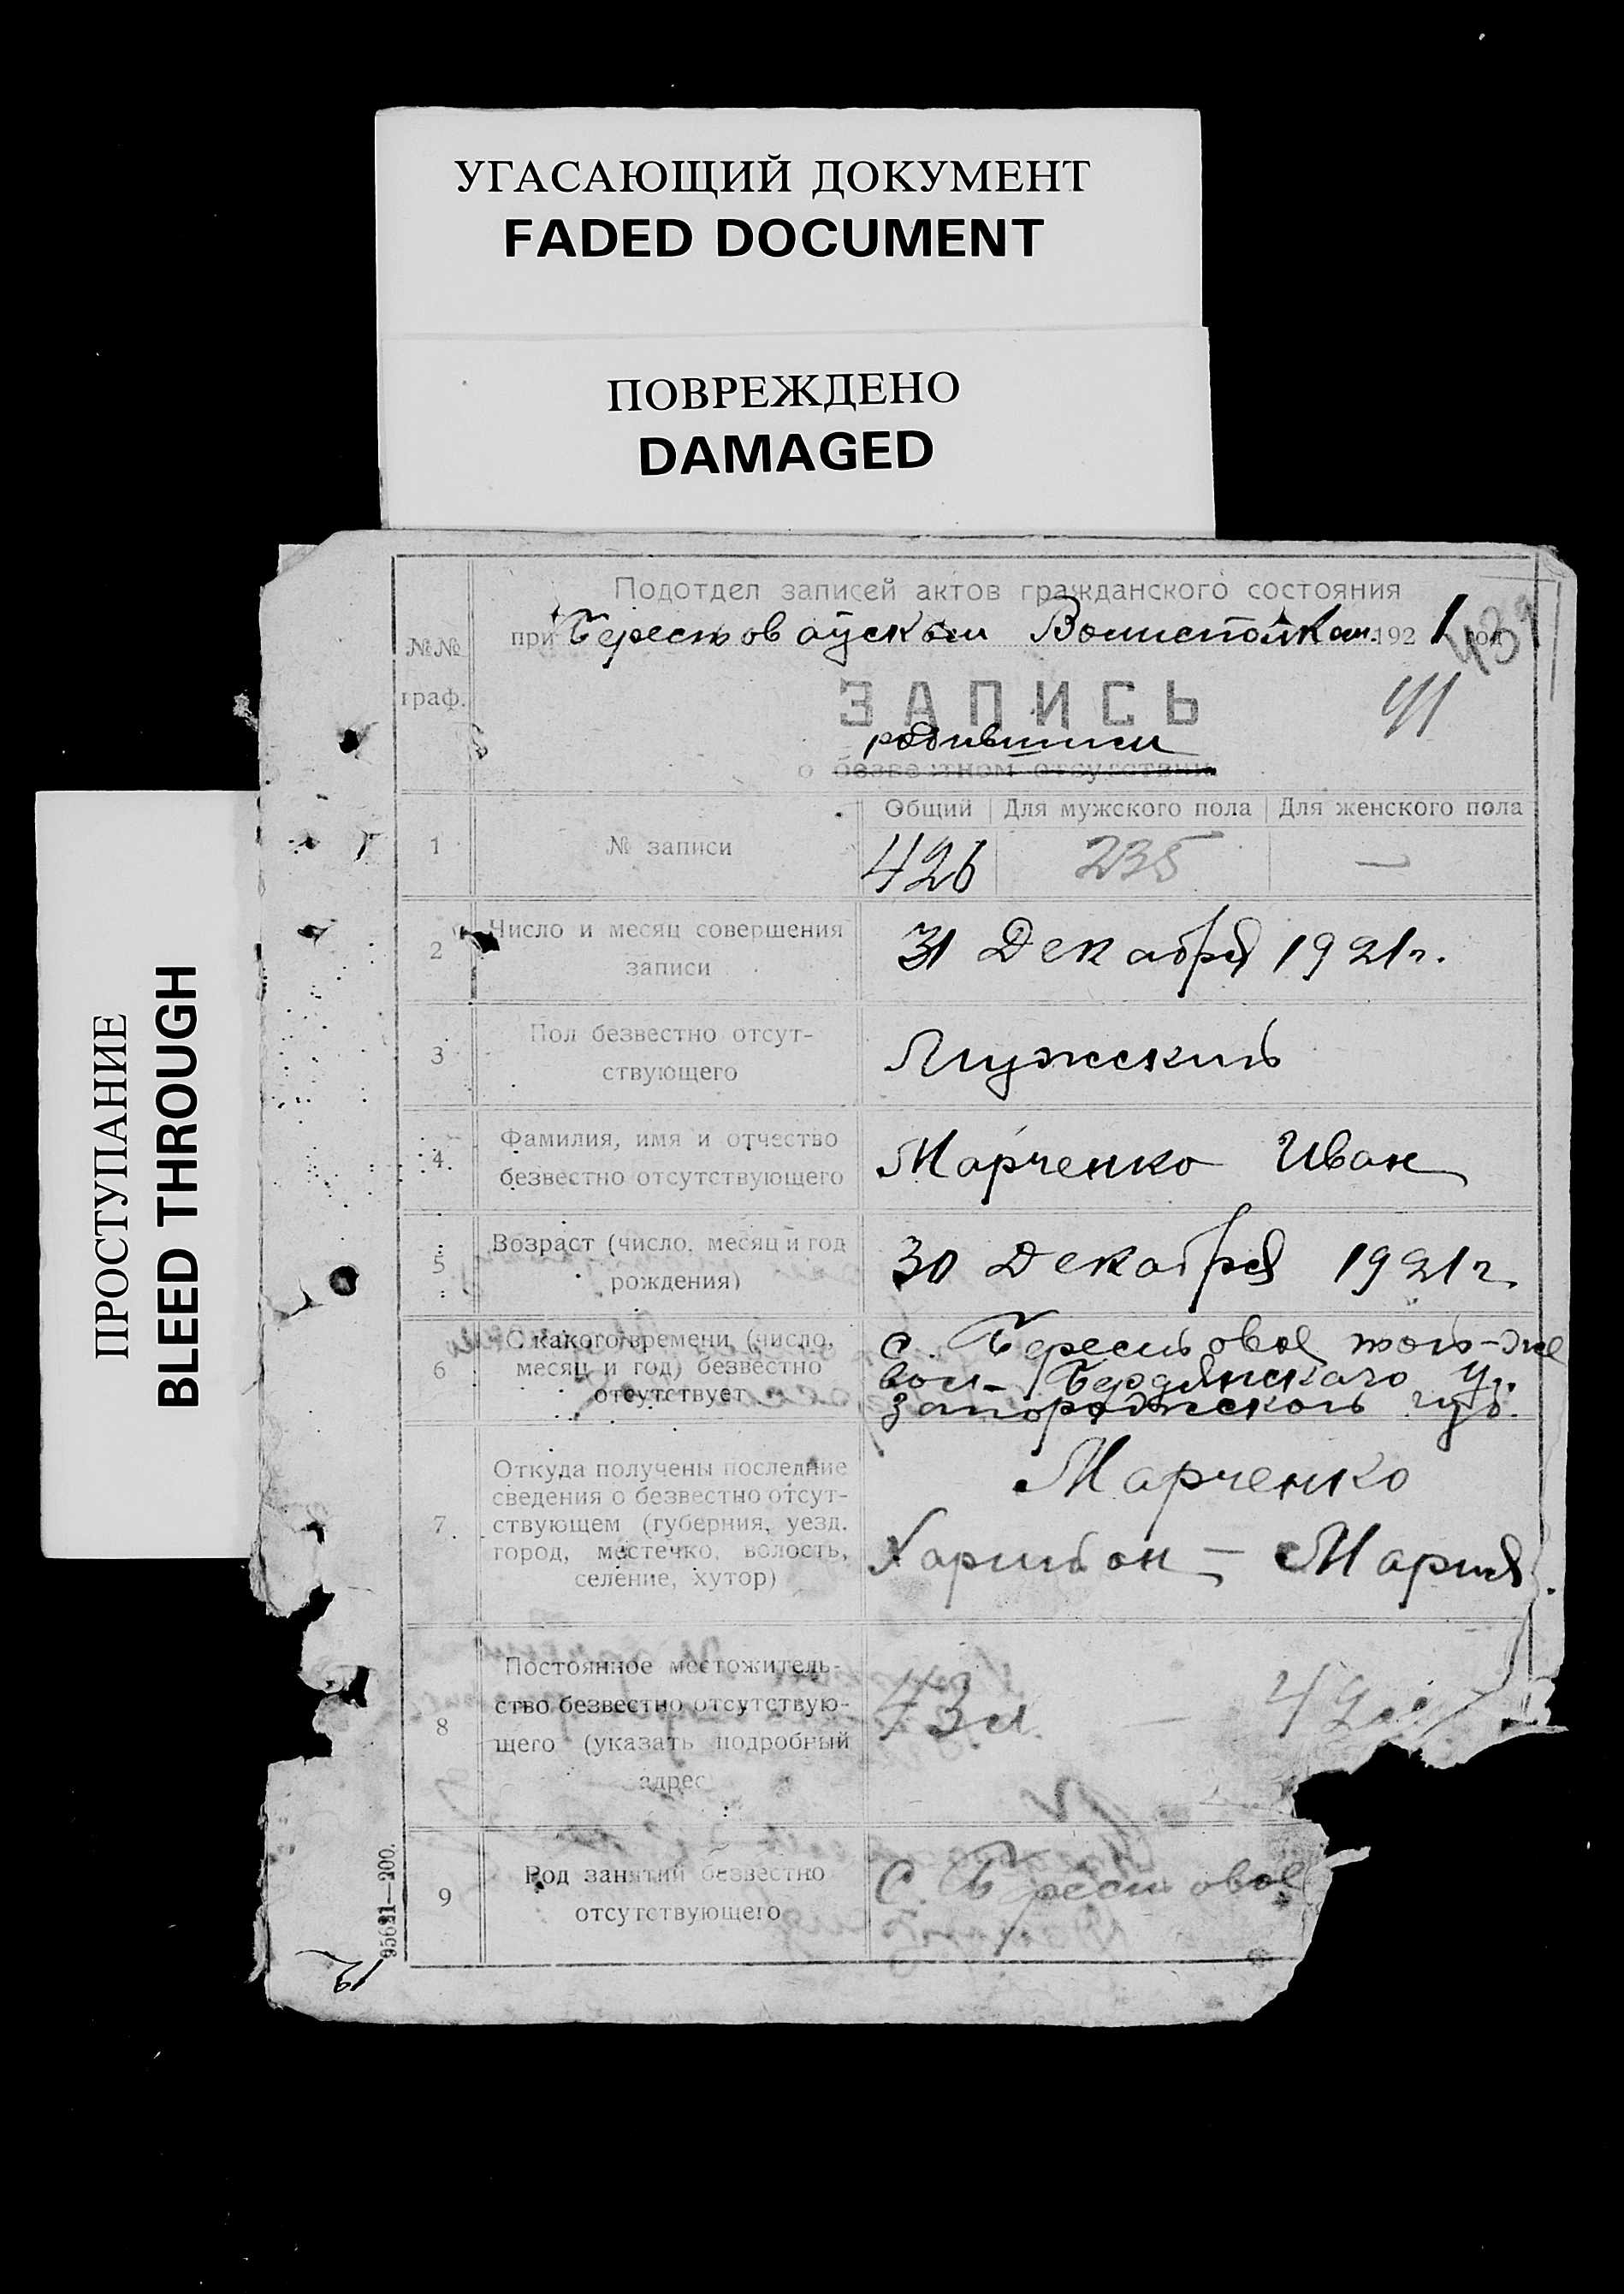 УГАСАЮЩИЙ ДОКУМЕНТ
FADED DOCUMENT
ПОВРЕЖДЕНО
DAMAGED
ПРОСТУПАНИЕ
BLEED THROUGH
№№ граф.
Подотдел записей актов гражданского состояния
при Берестовауском Волисполком. 1921 год
439
ЗАПИСЬ
91
родившиси
о безвестном отсутствии
Общий Для мужского пола Для женского пола
1 № записи 426 235 —
2 Число и месяц совершения
записи
31 Декабря 1921 г.
3 Пол безвестно отсут-
ствующего
Мужский
4 Фамилия, имя и отчество
безвестно отсутствующего
Марченко Иван
5 Возраст (число, месяц и год
рождения)
30 Декабря 1921 г.
6 С какого времени (число,
месяц и год) безвестно
отсутствует
с. Берестовое той-же
вол. Бердянского У.
Запорожской губ.
7 Откуда получены последние
сведения о безвестно отсут-
ствующем (губерния, уезд,
город, местечко, волость,
селение, хутор)
Марченко
Харитон — Мария.
8 Постоянное местожитель-
ство безвестно отсутствую-
щего (указать подробный
адрес
43 л. —
9 Род занятий безвестно
отсутствующего
С. Берестовое
95621—200.